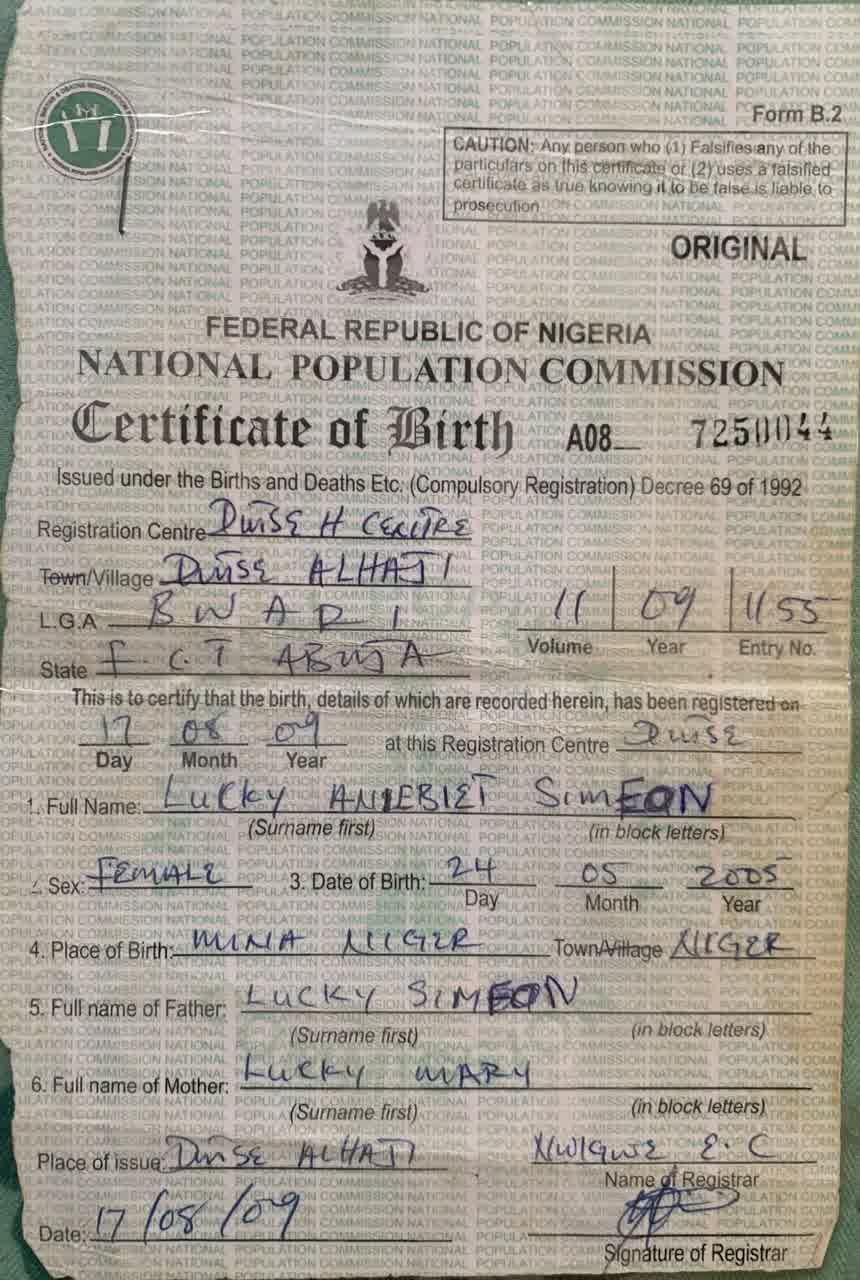 Form B.2
CAUTION: Any person who (1) Falsifies any of the
particulars on this certificate or (2) uses a falsified
certificate as true knowing it to be false is liable to
prosecution
ORIGINAL
FEDERAL REPUBLIC OF NIGERIA
NATIONAL POPULATION COMMISSION
Certificate of Birth A08 7250044
Issued under the Births and Deaths Etc. (Compulsory Registration) Decree 69 of 1992
Registration Centre H CENTRE
Town/Village ALHAJI
L.G.A BWARI 11 09 1155
Volume Year Entry No.
State F.C.T ABUJA
This is to certify that the birth, details of which are recorded herein, has been registered on
17 08 09 at this Registration Centre
Day Month Year
1. Full Name: LUCKY SIMEON
(Surname first) (in block letters)
2. Sex: FEMALE 3. Date of Birth: 24 05 2005
Day Month Year
4. Place of Birth: MINA NIGER Town/Village NIGER
5. Full name of Father: LUCKY SIMEON
(Surname first) (in block letters)
6. Full name of Mother: LUCKY MARY
(Surname first) (in block letters)
Place of issue: ALHAJI NWIGWE E. C
Name of Registrar
Date: 17/08/09
Signature of Registrar